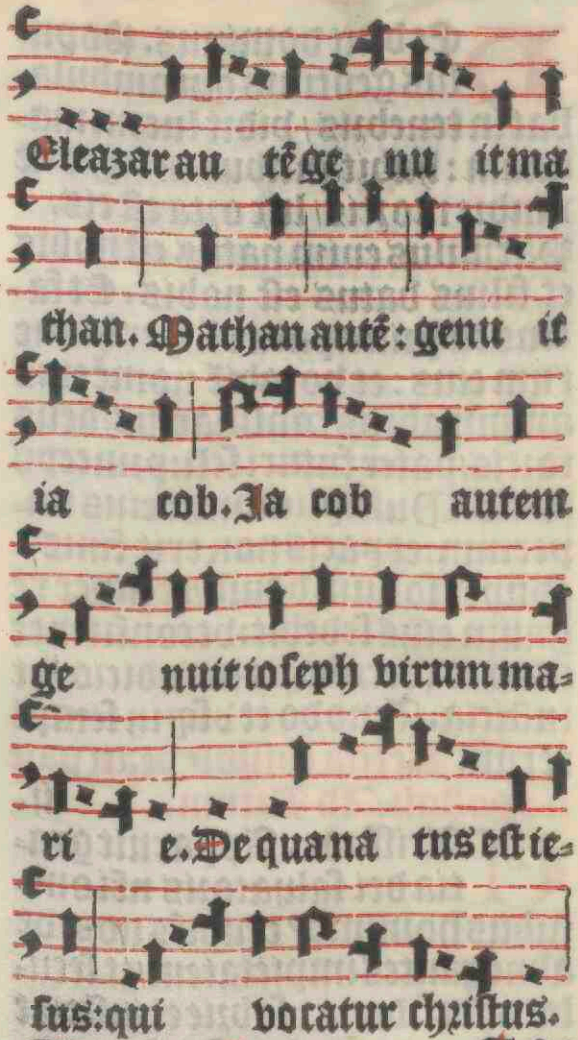 Eleazar au tē ge nu it ma
than. Mathan autē: genu it
ia cob. Ja cob autem
ge nuit ioseph virum ma⸗
ri e. De qua na tus est ie⸗
sus: qui vocatur christus.